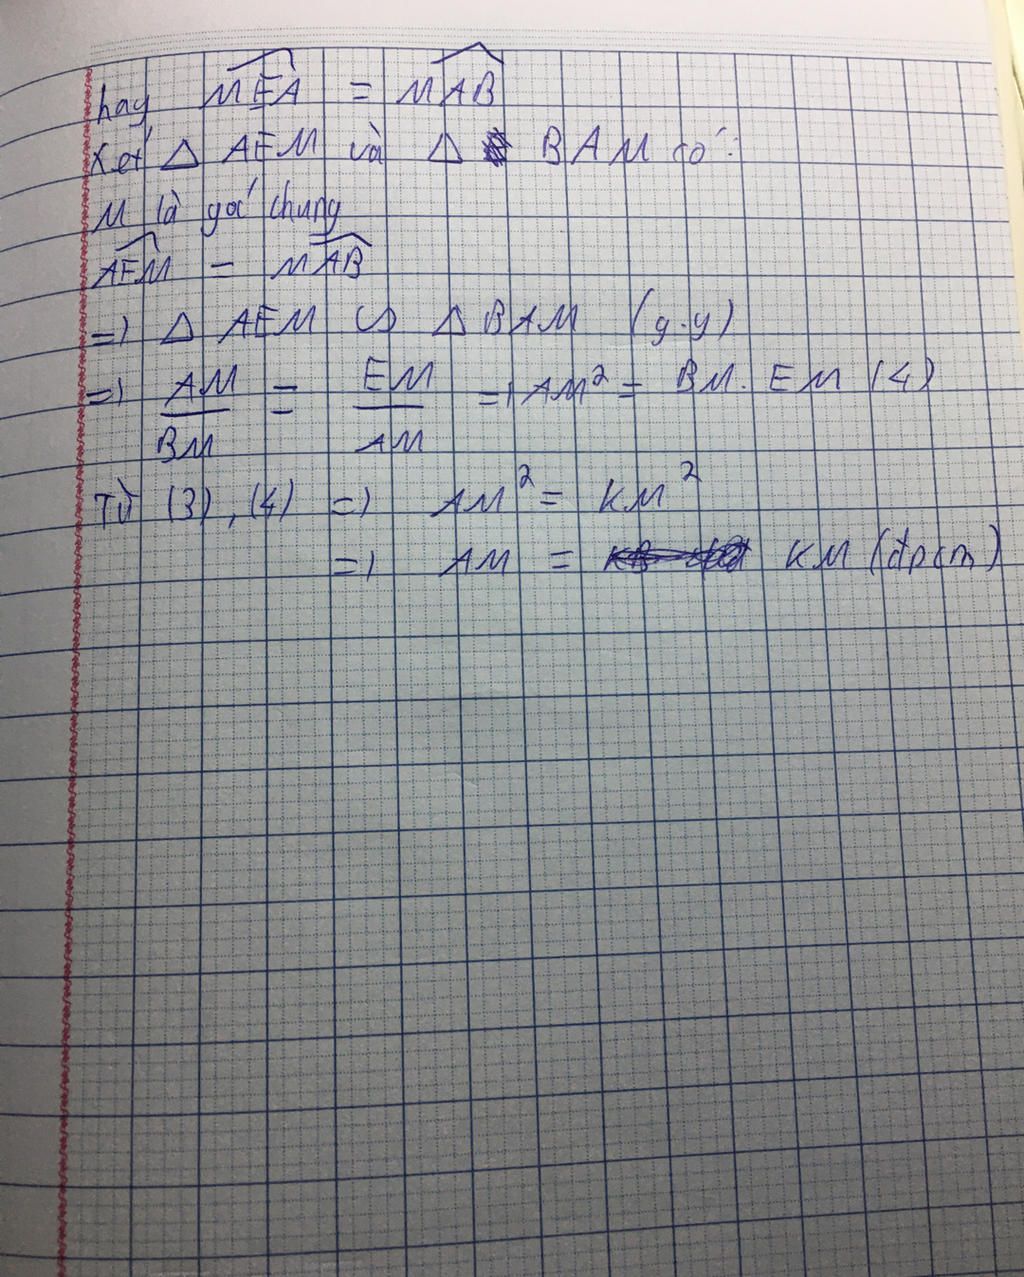 hay MEA = MAB
Xét Δ AEM và Δ BAM có:
M là góc chung
AEM = MAB
=> Δ AEM ∽ Δ BAM (g.g)
=> AM/BM = EM/AM => AM² = BM. EM (4)
Từ (3), (4) => AM² = KM²
=> AM = KM (đpcm)